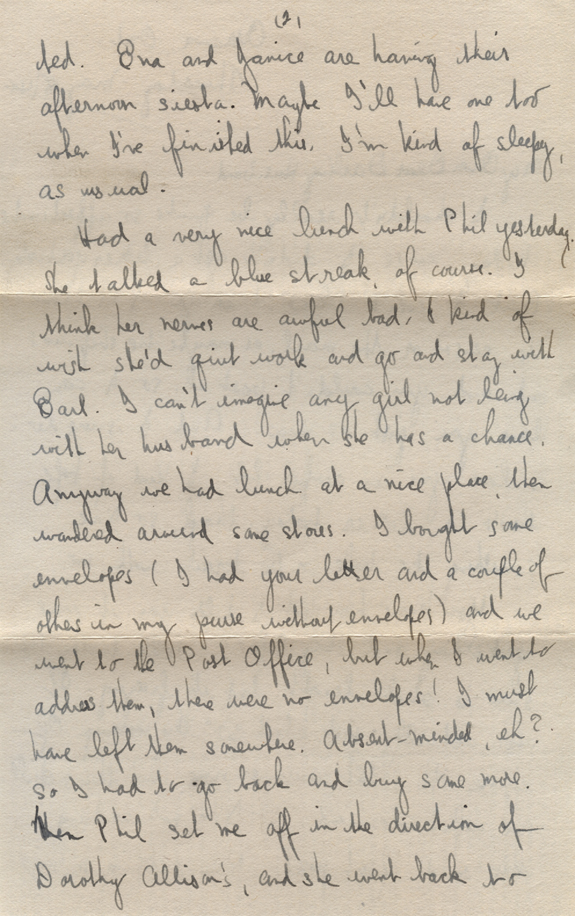 (2)
ted. Ena and Janice are having their
afternoon siesta. Maybe I'll have one too
when I've finished this. I'm kind of sleepy,
as usual.
Had a very nice lunch with Phil yesterday.
She talked a blue streak, of course. I
think her nerves are awful bad, & kind of
wish she'd quit work and go and stay with
Earl. I can't imagine any girl not being
with her husband when she has a chance.
Anyway we had lunch at a nice place, then
wandered around some stores. I bought some
envelopes (I had your letter and a couple of
others in my purse without envelopes) and we
went to the Post Office, but when I went to
address them, there were no envelopes! I must
have left them somewhere. Absent-minded, eh?
So I had to go back and buy some more.
Then Phil set me off in the direction of
Dorothy Allison's, and she went back to